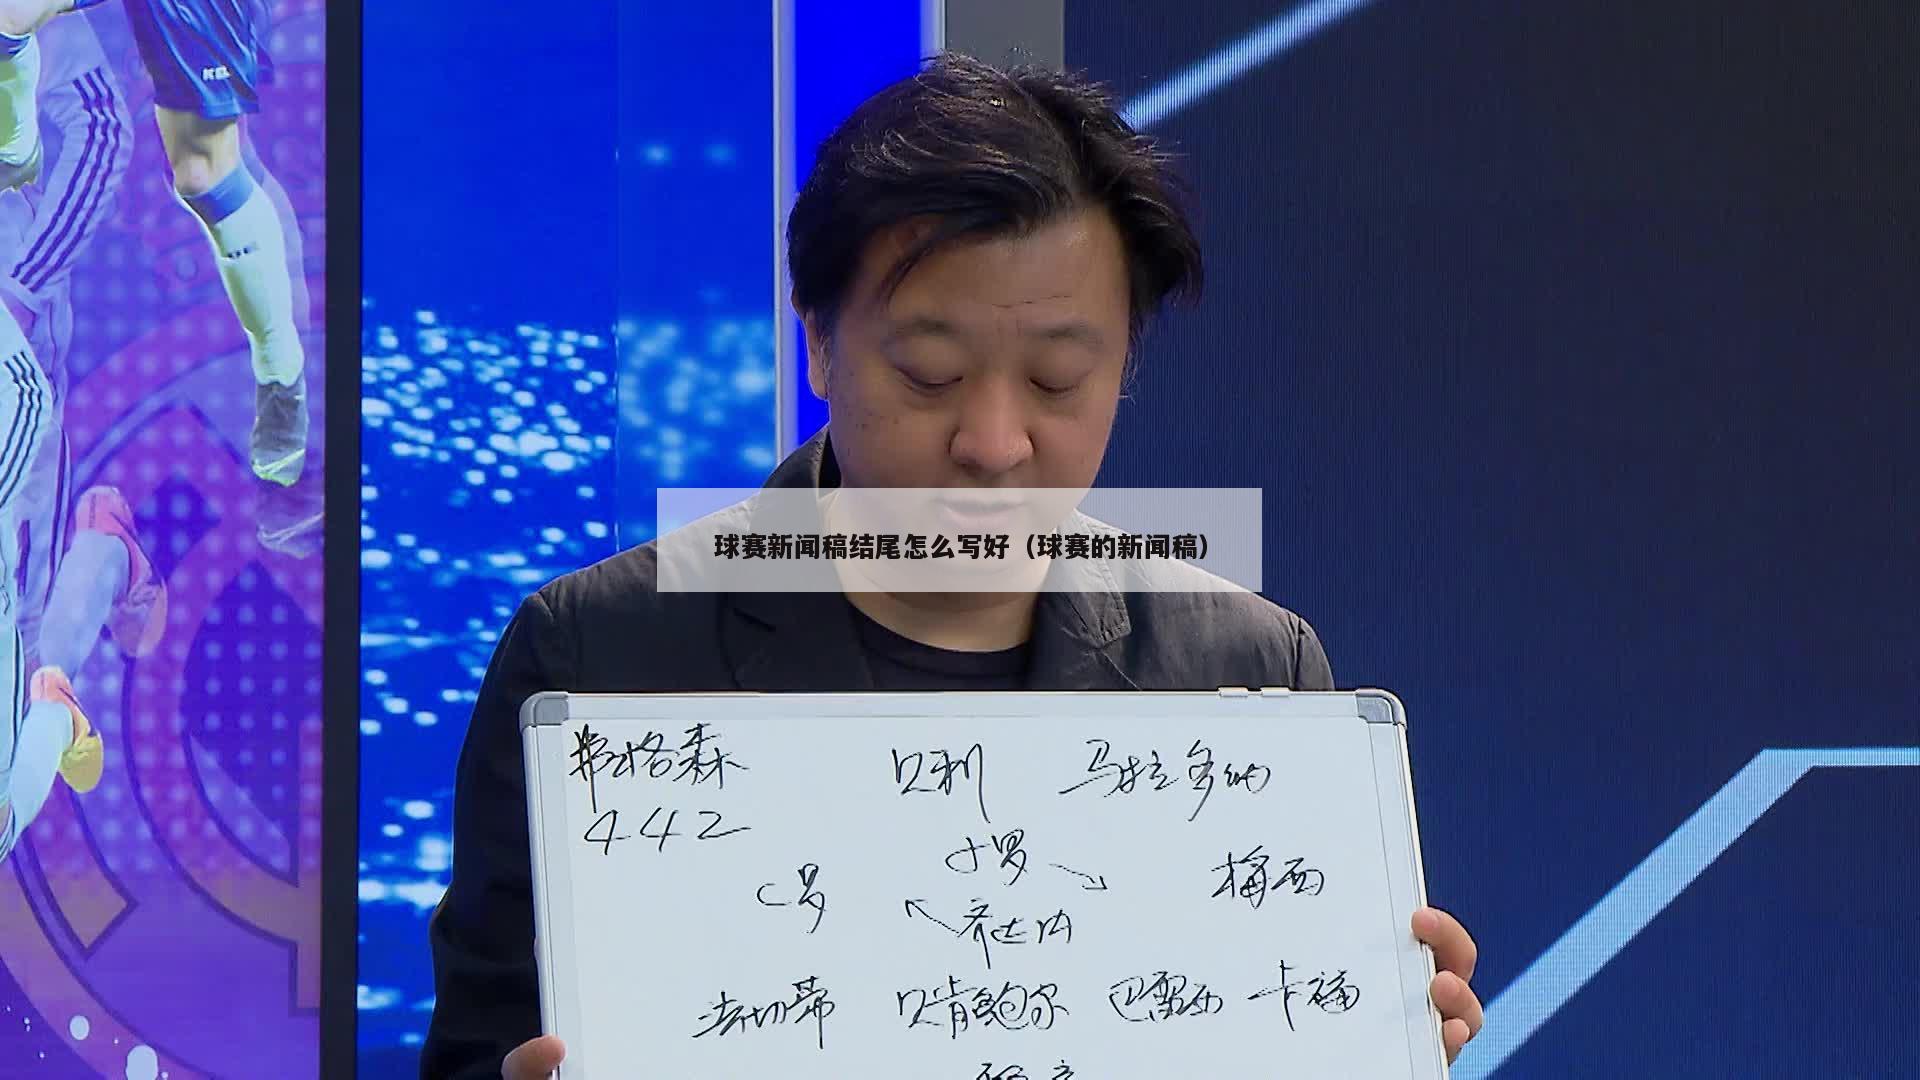 球赛新闻稿结尾怎么写好（球赛的新闻稿）
弗格森 贝利 马拉多纳
442
小罗
C罗 梅西
齐达内
法切蒂 贝肯鲍尔 巴雷西 卡福